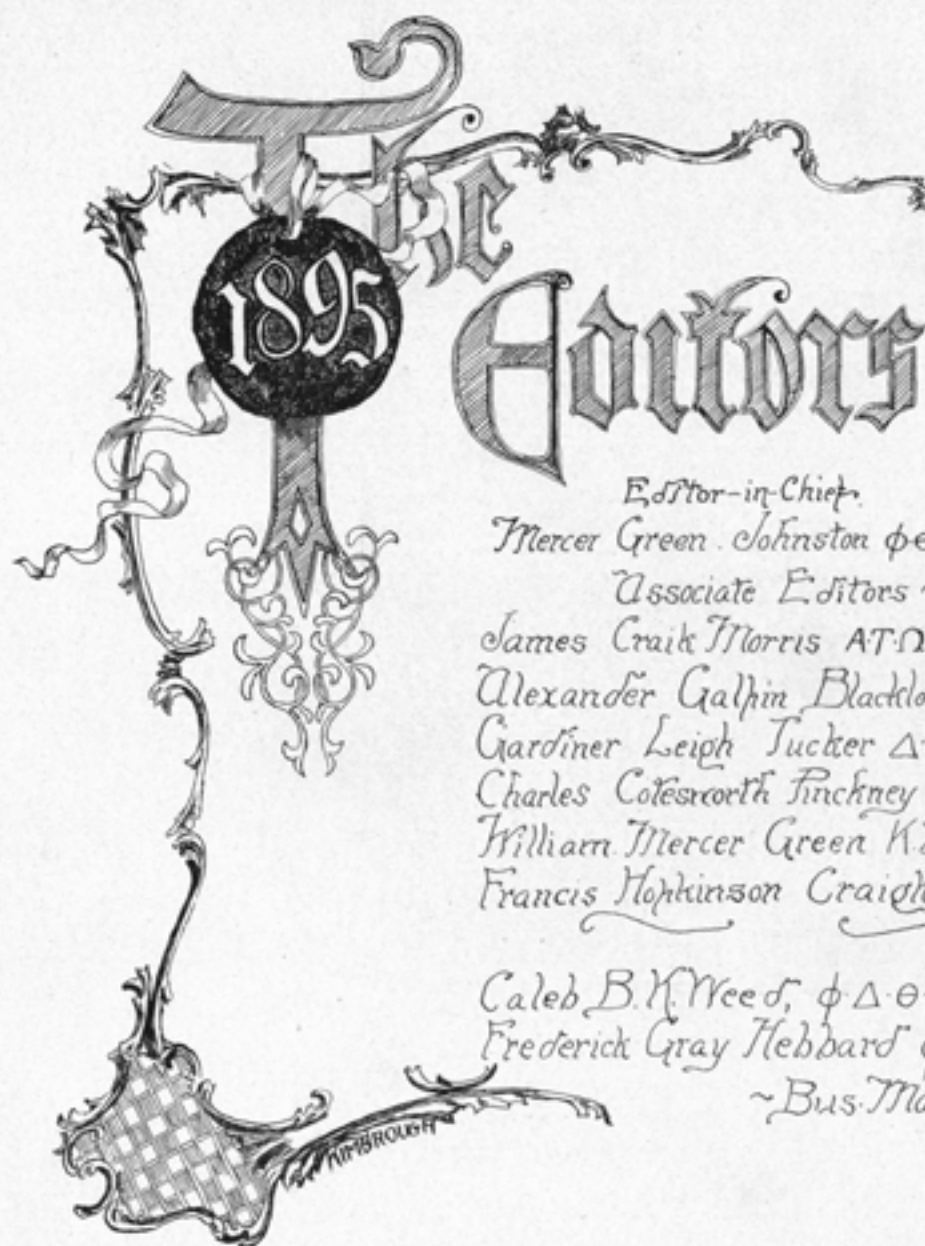 The
1895
Editors
Editor-in-Chief.
Mercer Green Johnston Φ
Associate Editors ~
James Craik Morris Α·Τ·Ω
Alexander Galpin
Gardiner Leigh Tucker Δ
Charles Cotesworth Pinckney
William Mercer Green K.
Francis Hopkinson
Caleb B.K. Weed, Φ·Δ·Θ
Frederick Gray Hebbard
~Bus.
KIMBROUGH